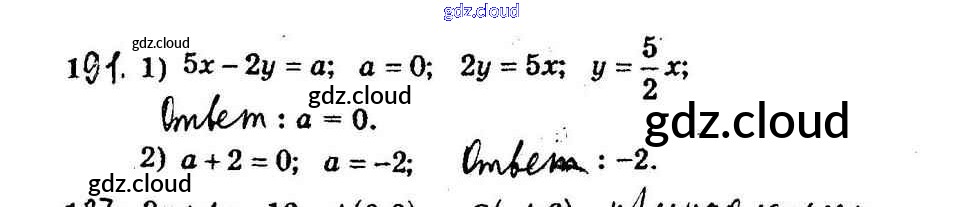 gdz.cloud
191. 1) 5x – 2y = a; a = 0; 2y = 5x; y = 5/2 x;
gdz.cloud
Ответ : a = 0.
gdz.cloud
gdz.cloud
2) a + 2 = 0; a = –2; Ответ : –2.
gdz.cloud